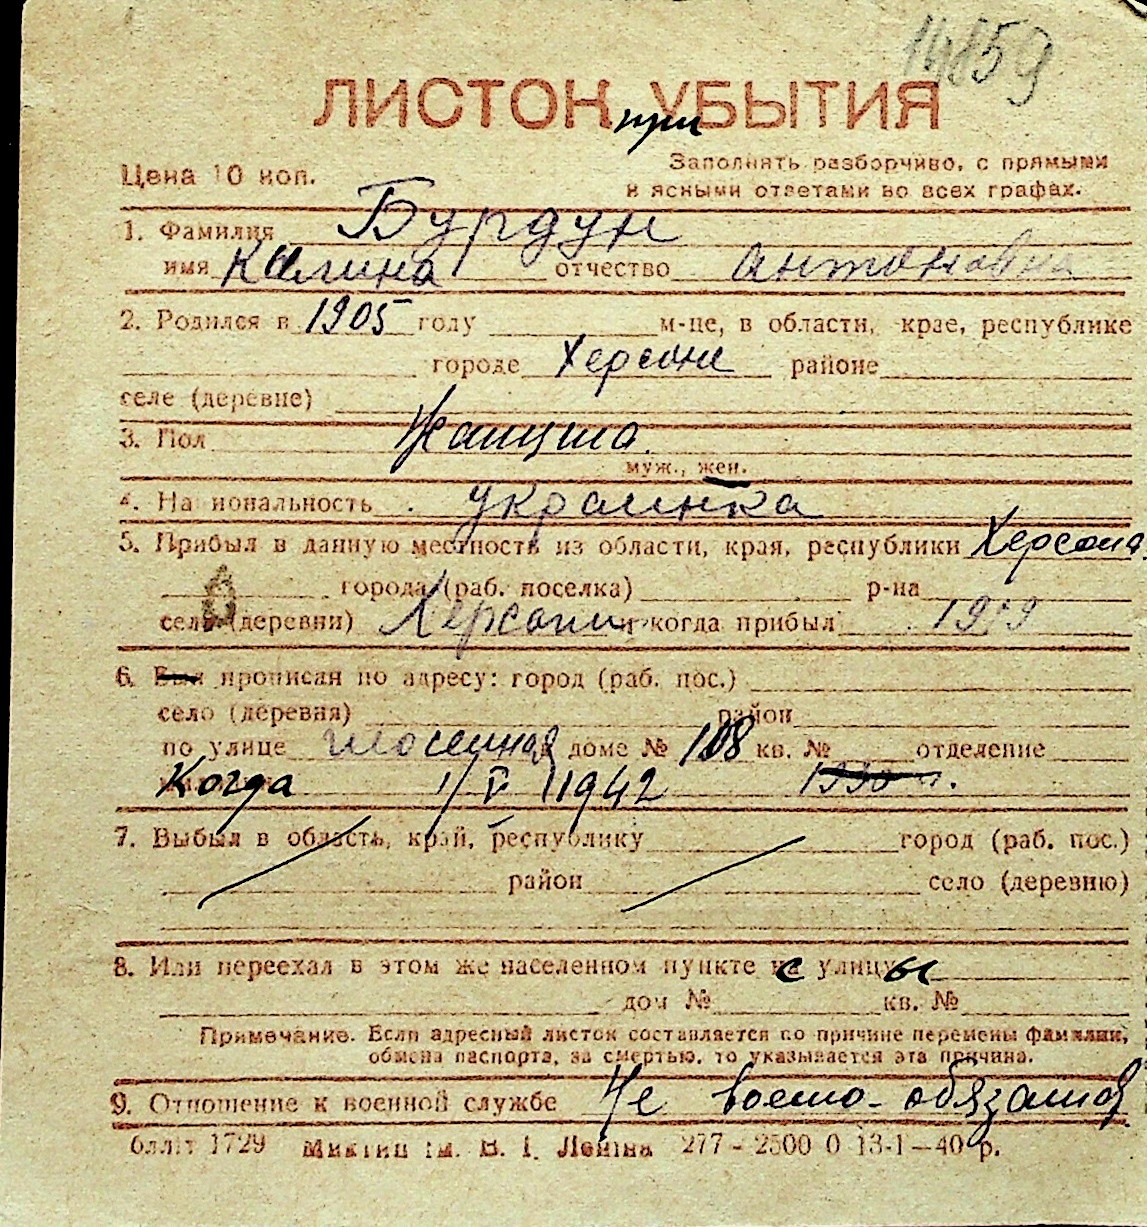 14859
ЛИСТОК при УБЫТИЯ
Цена 10 коп.
Заполнять разборчиво, с прямыми
и ясными ответами во всех графах.
1. Фамилия Бурдун
имя Калина отчество Антоновна
2. Родился в 1905 году м-це, в области, крае, республике
городе Херсоне районе
селе (деревне)
3. Пол Женщина.
муж., жен.
4. На иональность украинка
5. Прибыл в данную местность из области, края, республики Херсона
города (раб. поселка) р-на
села (деревни) Херсони и когда прибыл 1919
6. Был прописан по адресу: город (раб. пос.)
село (деревня) район
по улице в доме № 108 кв. № отделение
Когда 1/V 1942 г.
7. Выбыл в область, край, республику город (раб. пос.)
район село (деревню)
8. Или переехал в этом же населенном пункте с улицы
дом № кв. №
Примечание. Если адресный листок составляется по причине перемены фамилии,
обмена паспорта, за смертью, то указывается эта причина.
9. Отношение к военной службе Не военно-обязанной
бліт 1729 ім. В. І. Леніна 277 - 2500 0 13-1-40 р.